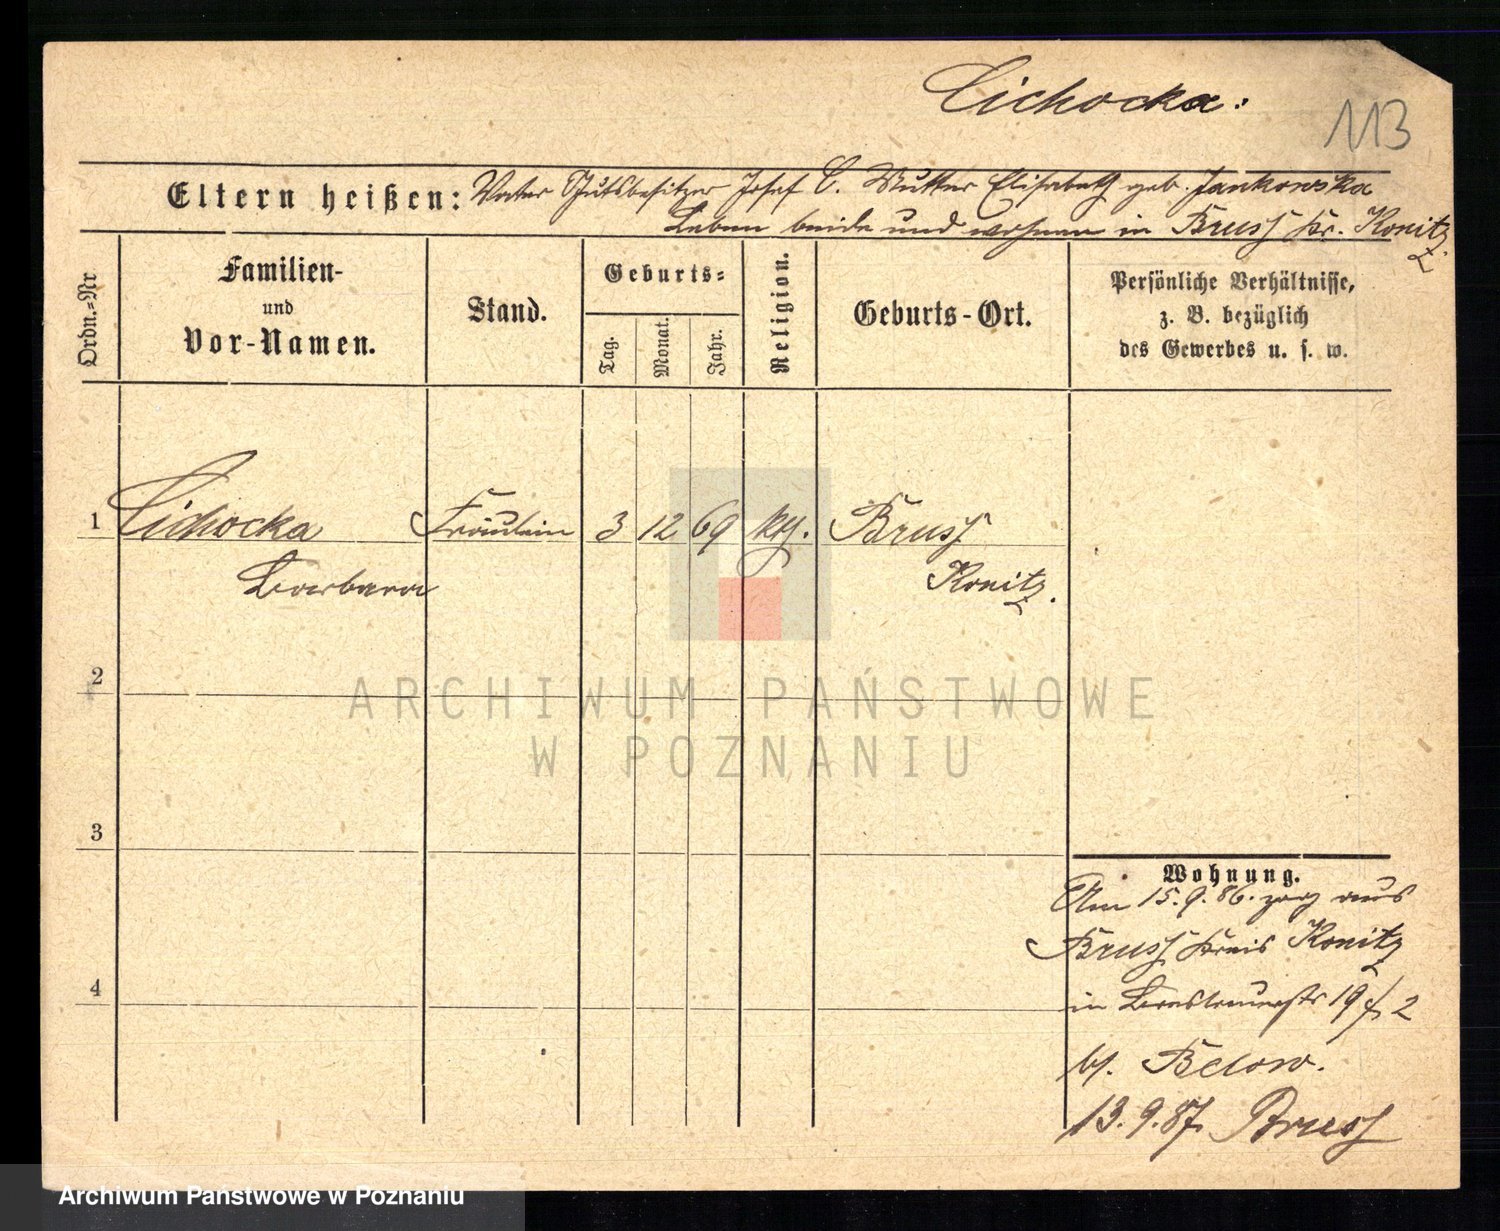 Cichocka:
113
Eltern heißen: Vater Gutsbesitzer Josef C. Mutter Elisabeth geb. Jankowska
Leben beide und wohnen in Bruss Kr. Konitz.
Ordn.-Nr
Familien-
und
Vor-Namen.
Stand.
Geburts-
Tag.
Monat.
Jahr.
Religion.
Geburts-Ort.
Persönliche Verhältnisse,
z. B. bezüglich
des Gewerbes u. s. w.
1 Cichocka Fräulein 3 12 69 kth. Bruss
Barbara Konitz.
2
ARCHIWUM PAŃSTWOWE
W POZNANIU
3
Wohnung.
Am 15.9.86. zog aus
Bruss Kreis Konitz
4
in 19 2
bf. Below.
13.9.87. Bruss
Archiwum Państwowe w Poznaniu